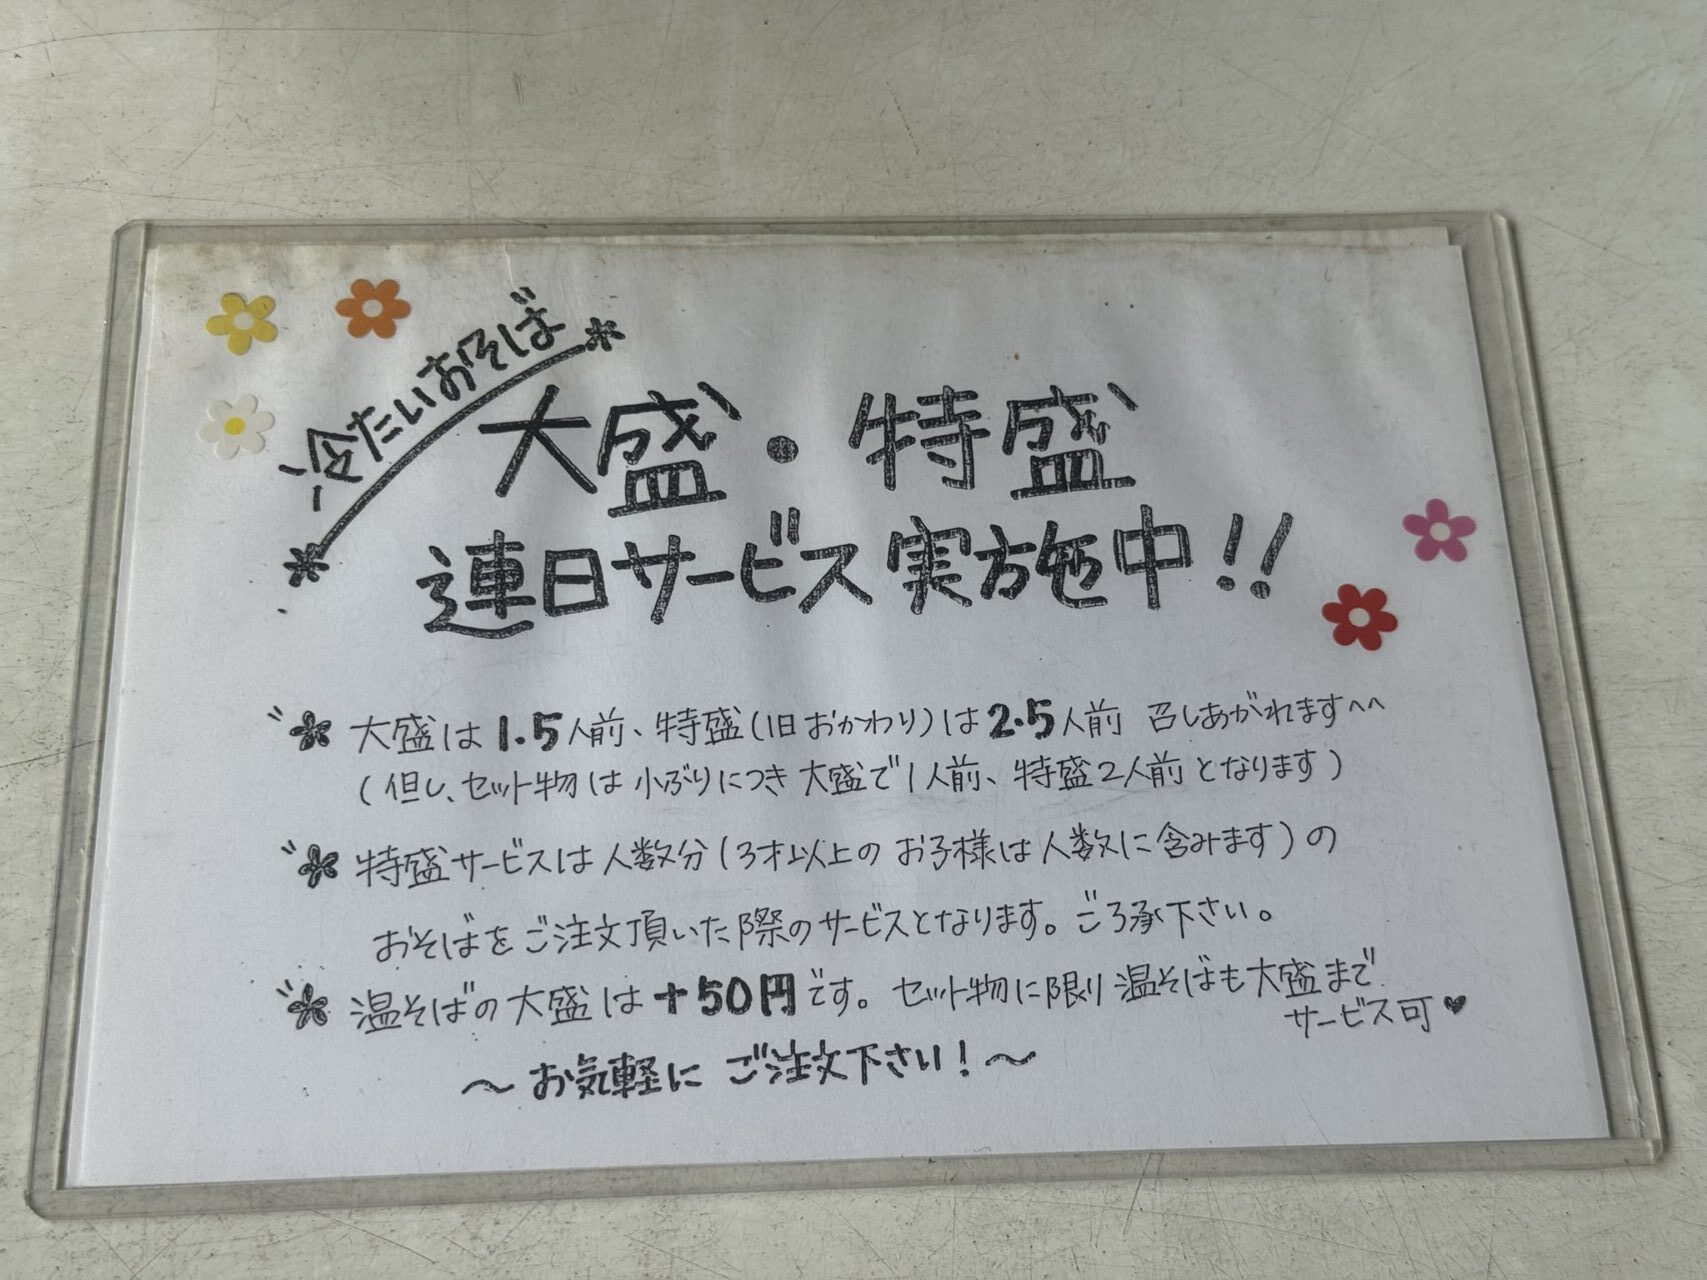 冷たいおそば
大盛・特盛
連日サービス実施中!!
大盛は1.5人前、特盛(旧おかわり)は2.5人前 召しあがれます^^
(但し、セット物は小ぶりにつき大盛で1人前、特盛2人前となります)
特盛サービスは人数分(3才以上のお子様は人数に含みます)の
おそばをご注文頂いた際のサービスとなります。ご了承下さい。
温そばの大盛は+50円です。セット物に限り温そばも大盛まで
サービス可♥
〜お気軽にご注文下さい!〜